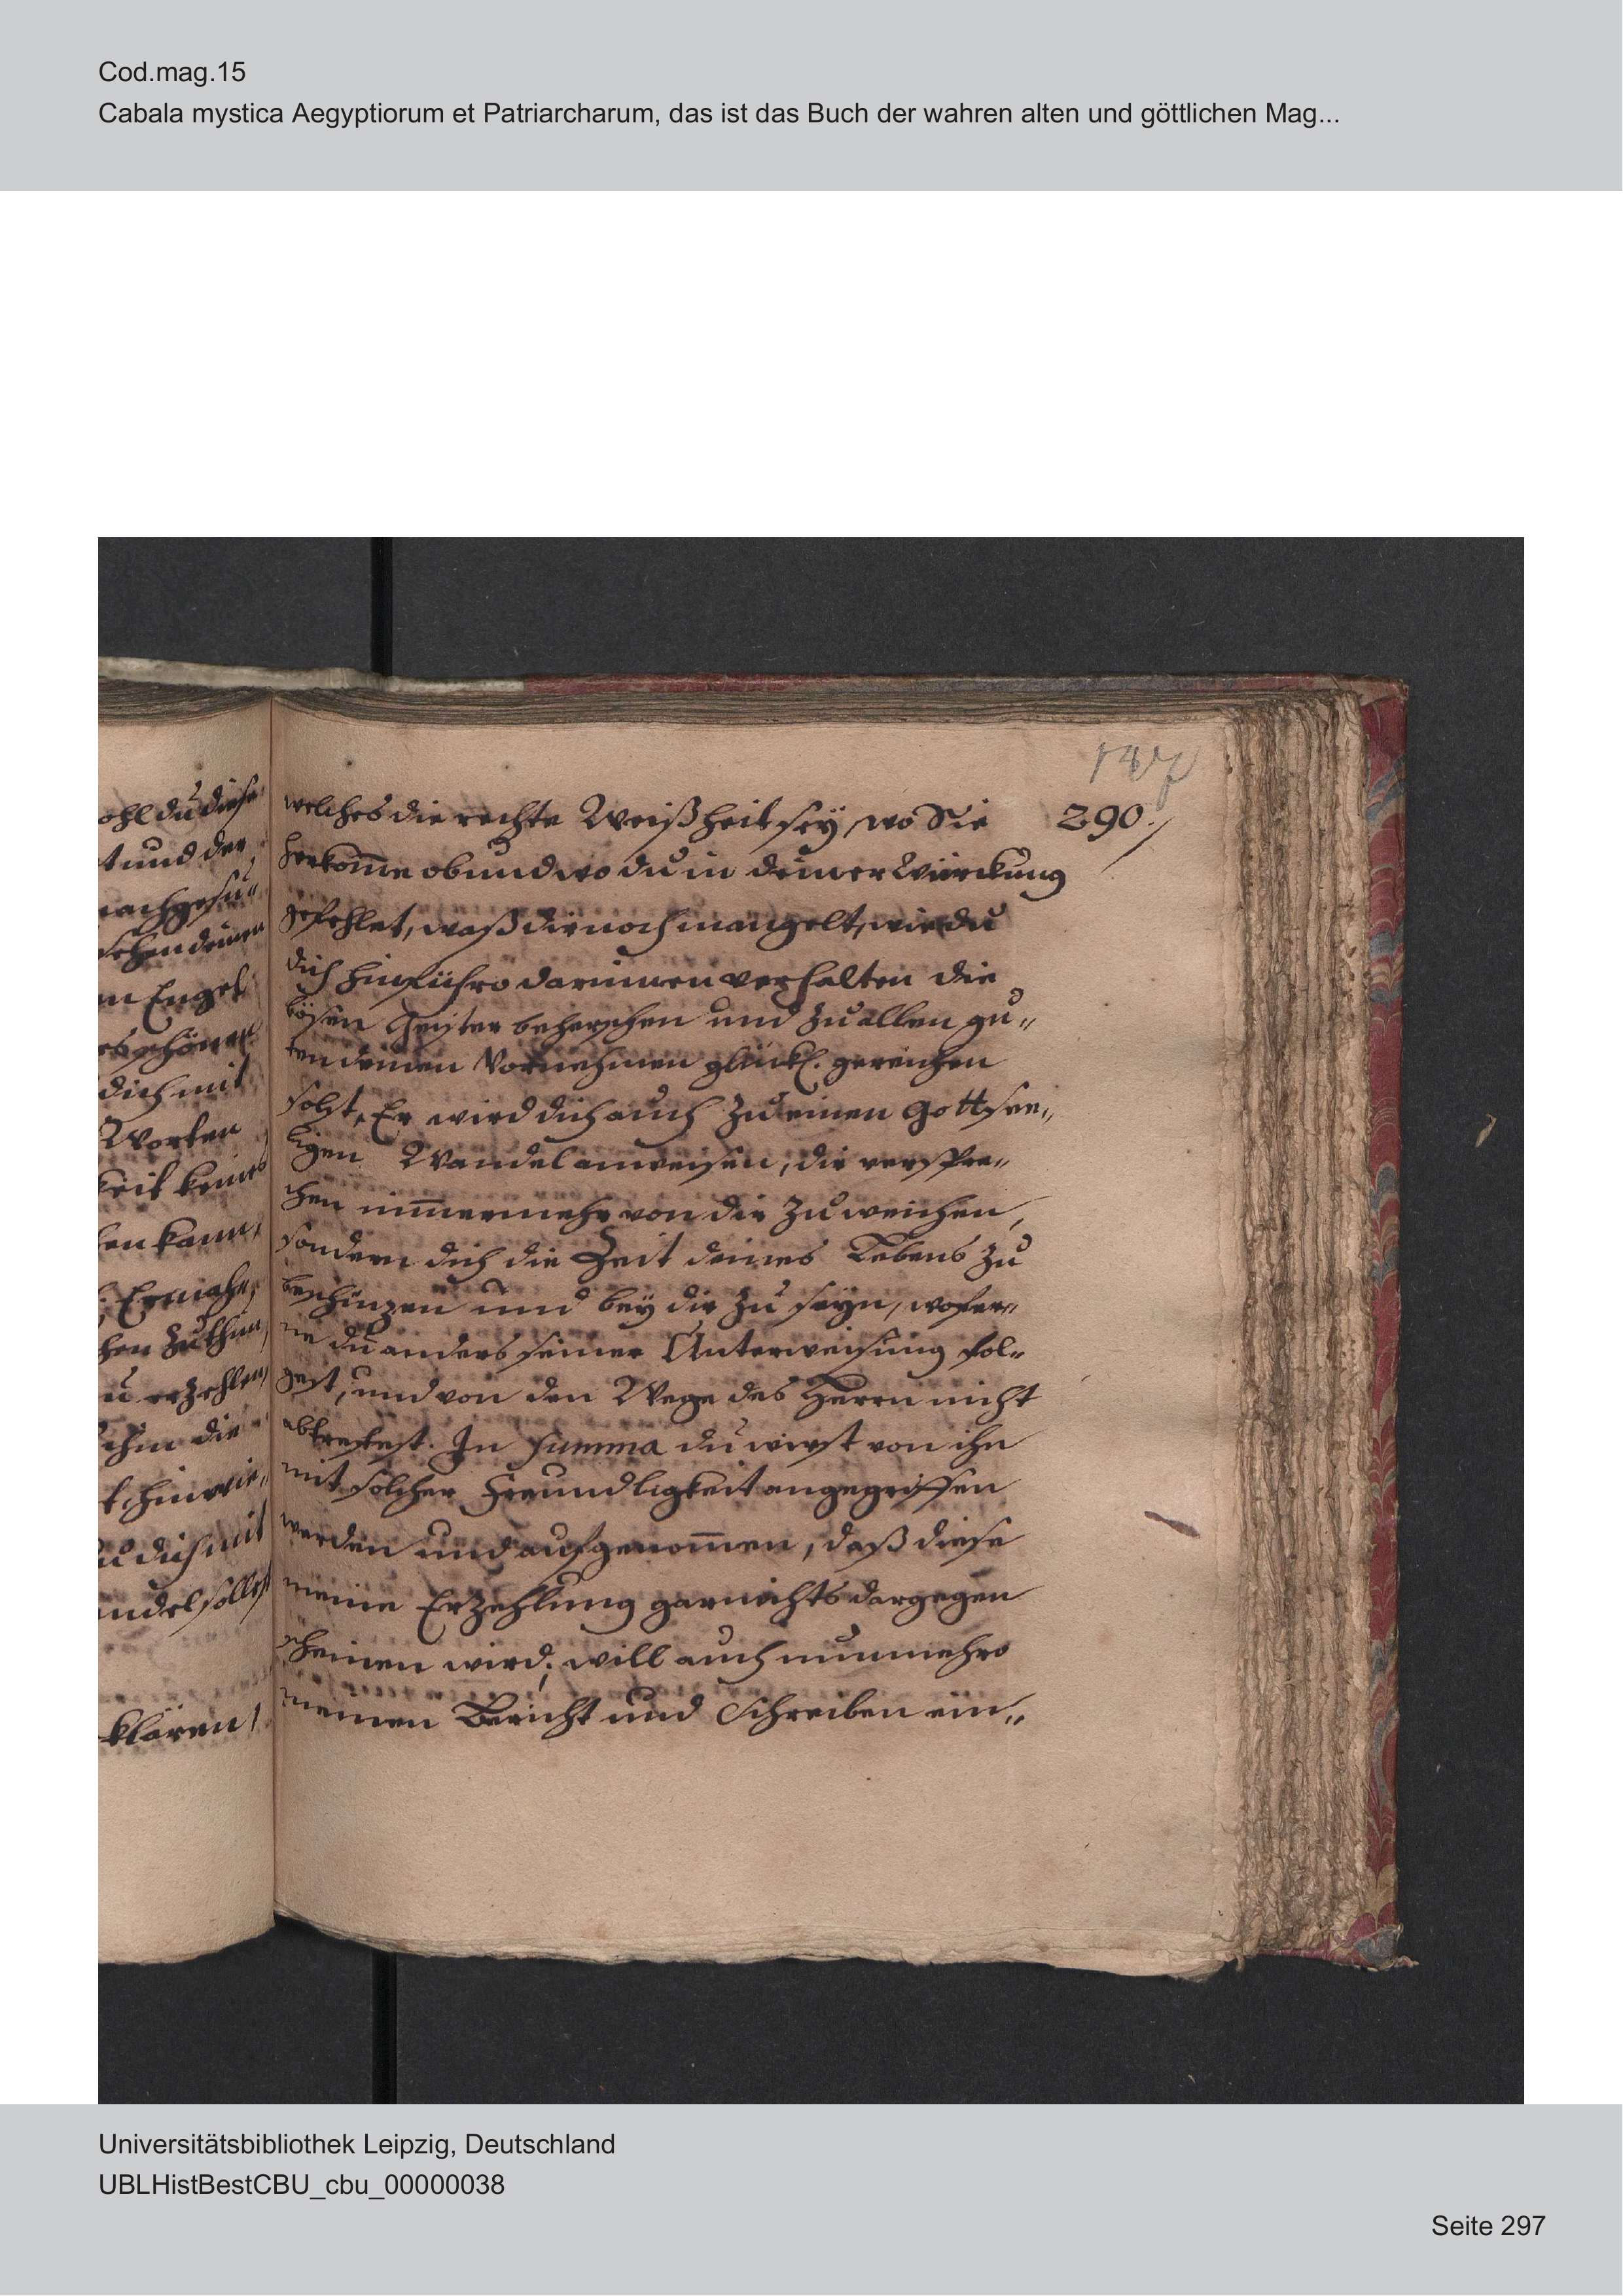 Cod.mag.15
Cabala mystica Aegyptiorum et Patriarcharum, das ist das Buch der wahren alten und göttlichen Mag...
290.
ohl du diese
t und der
nachgesu„
sehen deinen
n Engel
es schönes
dich mit
Worten
keit keines
en kann,
hen zu thun
u erzehlen
ihm die
t, hinwie„
u dich mit
ndel sollst
klären,
welches die rechte Weißheit sey, wo Sie
herkom̄e ob und wo du in deiner Würckung
gefehlet, waß dir noch mangelt, wie du
dich hinführo darinnen verhalten die
bösen Geister beherschen und zu allen gu„
ten deinen Vornehmen glückl. gereichen
solst, Er wird dich auch zu einen Gottsee„
ligen Wandel anweisen, dir verspre„
chen nim̄ermehr von dir zu weichen,
sondern dich die Zeit deines Lebens zu
beschüzen und bey dir zu seyn, wofer„
ne du anders seiner Unterweisung fol„
gest, und von den Wege des Herrn nicht
abtretest. In Summa du wirst von ihn
mit solcher Freundligkeit angegriffen
werden und aufgenom̄en, daß diese
meine Erzehlung gar nichts dargegen
scheinen wird; will auch nunmehro
meinen Bericht und Schreiben ein„
Universitätsbibliothek Leipzig, Deutschland
UBLHistBestCBU_cbu_00000038
Seite 297